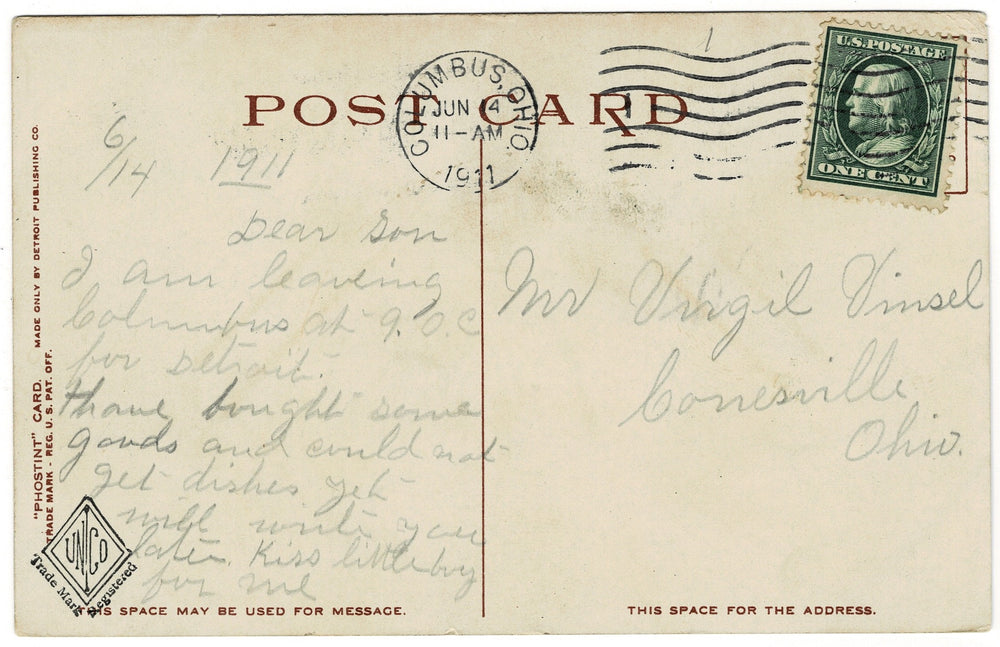 POST CARD
COLUMBUS, OHIO.
JUN 14
11-AM
1911
U.S. POSTAGE
ONE CENT
6/14 1911
Dear Son
I am leaveing
Columbus at 9. O.C
for Detroit.
I have bought some
goods and could not
get dishes yet
will write you
later. Kiss little boy
for me
Mr Virgil Vinsel
Conesville
Ohio.
"PHOSTINT" CARD. MADE ONLY BY DETROIT PUBLISHING CO.
TRADE MARK - REG. U. S. PAT. OFF.
UNCO
Trade Mark Registered
THIS SPACE MAY BE USED FOR MESSAGE.
THIS SPACE FOR THE ADDRESS.